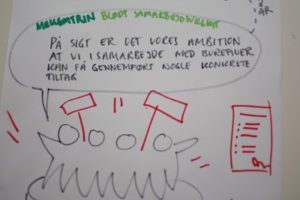 BLØDT SAMARBEJDSVILLIGT
PÅ SIGT ER DET VORES AMBITION
AT VI, I SAMARBEJDE MED BUREAUER
KAN FÅ GENNEMFØRT NOGLE KONKRETE
TILTAG
ÅR